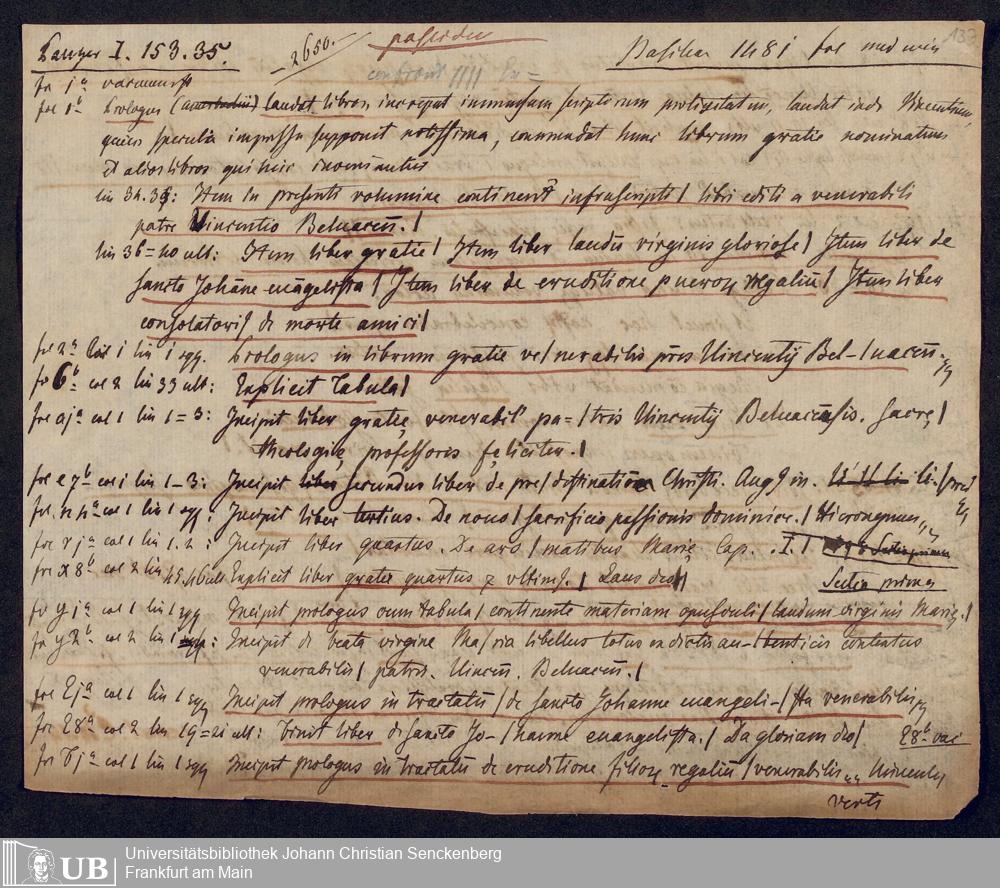 Panzer I. 153. 35. – 2650. – Basileae 1481 fol
137
fol 1a
fol 1b Prologus laudat libros increpat immensam scriptorum prolixitatem, laudat inde Vincentium,
cuius specula impressa supponit notissima, commendat hunc librum gratie nominatum
et alios libros qui hic inveniuntur
lin 34. 35: Item in presenti volumine continentur infrascripti / libri editi a venerabili
patre Vincentio Beluaceñ. /
lin 36 = 40 ult: Item liber gratie / Item liber laudum virginis gloriose / Item liber de
sancto Johãne euãgelista / Item liber de eruditione pueroꝝ regaliũ / Item liber
consolatorius de morte amici /
fol 2a col 1 lin 1 sqq. Prologus in librum gratie ve/nerabilis pris Uincentij Bel-/uaceñ.
fol 6b col 2 lin 33 ult: Explicit tabula /
fol aja col 1 lin 1 = 3: Incipit liber gratie venerabil' pa=/tris Uincentij Beluaceñsis. sacre /
theologie professoris feliciter. /
fol e 7b col 1 lin 1–3: Incipit secundus liber de pre/destinatione Christi. Aug9 in. li. /
col 1 lin 1 sqq: Incipit liber tertius. De nouo / sacrificio passionis dominice. / Hieronymus
fol rja col 1 lin 1. 2: Incipit liber quartus. De ars / matibus Marie Cap. .I. /
fol x 8b col 2 lin 45. 46 ult Explicit liber gratie quartus ⁊ vltims. / Laus deo / prima
fol yja col 1 lin 1 sqq Incipit prologus cum tabula / continente materiam opusculi / laudum virginis Marie. /
fol y2b col 2 lin 1 sqq: Incipit de beata virgine Ma/ria libellus totus ex dictis au-/tenticis contentus
venerabilis / patris. Uinceñ. Beluaceñ. /
fol Eja col 1 lin 1 sqq Incipit prologus in tractatũ / de sancto Johanne euangeli-/sta venerabilis
fol E8a col 2 lin 19 = 21 ult: Finit liber de sancto Jo-/hanne euangelista. / Da gloriam deo / E8b vac
col 1 lin 1 sqq Incipit prologus in tractatũ de eruditione filioꝝ regaliũ / venerabilis Uincentij
verte
UB Universitätsbibliothek Johann Christian Senckenberg
Frankfurt am Main